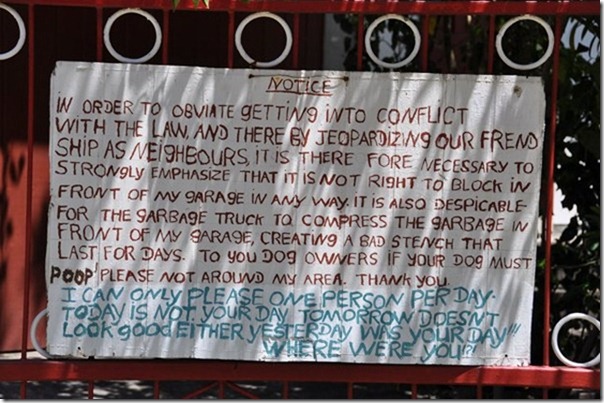 NOTICE
IN ORDER TO OBVIATE GETTING INTO CONFLICT
WITH THE LAW, AND THERE BY JEOPARDIZING OUR FREND
SHIP AS NEIGHBOURS, IT IS THERE FORE NECESSARY TO
STRONGLY EMPHASIZE THAT IT IS NOT RIGHT TO BLOCK IN
FRONT OF MY GARAGE IN ANY WAY. IT IS ALSO DESPICABLE
FOR THE GARBAGE TRUCK TO COMPRESS THE GARBAGE IN
FRONT OF MY GARAGE, CREATING A BAD STENCH THAT
LAST FOR DAYS. TO YOU DOG OWNERS IF YOUR DOG MUST
POOP PLEASE NOT AROUND MY AREA. THANK YOU.
I CAN ONLY PLEASE ONE PERSON PER DAY.
TODAY IS NOT YOUR DAY TOMORROW DOESN'T
LOOK GOOD EITHER YESTERDAY WAS YOUR DAY!!!
WHERE WERE YOU?!